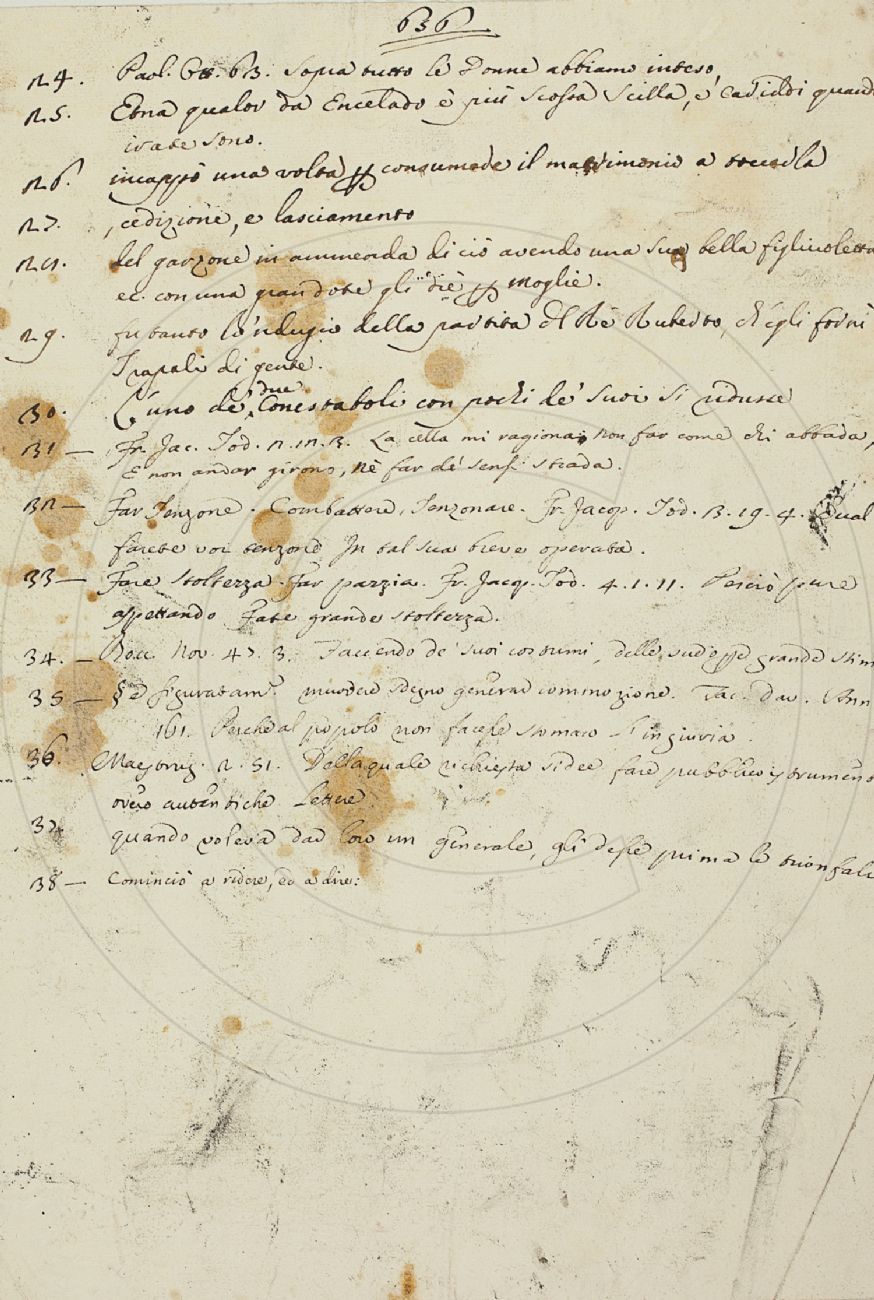 636
24. Paol. Ott. 63. Sopra tutto le Donne abbiamo inteso,
25. Etna qualor da Encelado è più scossa Scilla, e Cariddi quand
irate sono.
26. incappò una volta consumade il matrimonio a toccolla
27. , cedizione, e lasciamento
28. del garzone in ammenda di ciò avendo una sua bella figliuoletta
ec. con una grandote gli diè moglie.
29. fu tanto lo 'ndugio della partita del Rè Ruberto, ch'egli forni
Trapali di gente.
30. L'uno de' due Conestaboli con pochi de' suoi si ridusse
31 — Fr. Jac. Tod. 2. 12. 3. La cella mi ragiona, Non far come chi abbada,
E non andar girono, nè far de' sensi strada.
32 — Far Tenzone. Combattere, Tenzonare. Fr. Jacop. Tod. 3. 19. 4. Qual
farete voi tenzone In tal sua breve operata.
33 — Fare stoltezza. Far pazzia. Fr. Jacop. Tod. 4. 1. 11. Perciò pure
aspettando Fate grande stoltezza.
34. — Bocc. Nov. 47. 3. Faccendo de' suoi costumi, delle sud opere grande stim
35 — § E figuratam. muovere sdegno generar commozione. Tac. Dav. Ann
161. Perchè al popolo non facesse stomaco l'ingiuria.
36. Maestruz. 2. 51. Della quale richiesta si dee fare pubblico strumento
overo autentiche Lettere.
37. quando voleva dad loro un generale, gli desse prima le trionfali
38 — Cominciò a ridere, ed a dire: